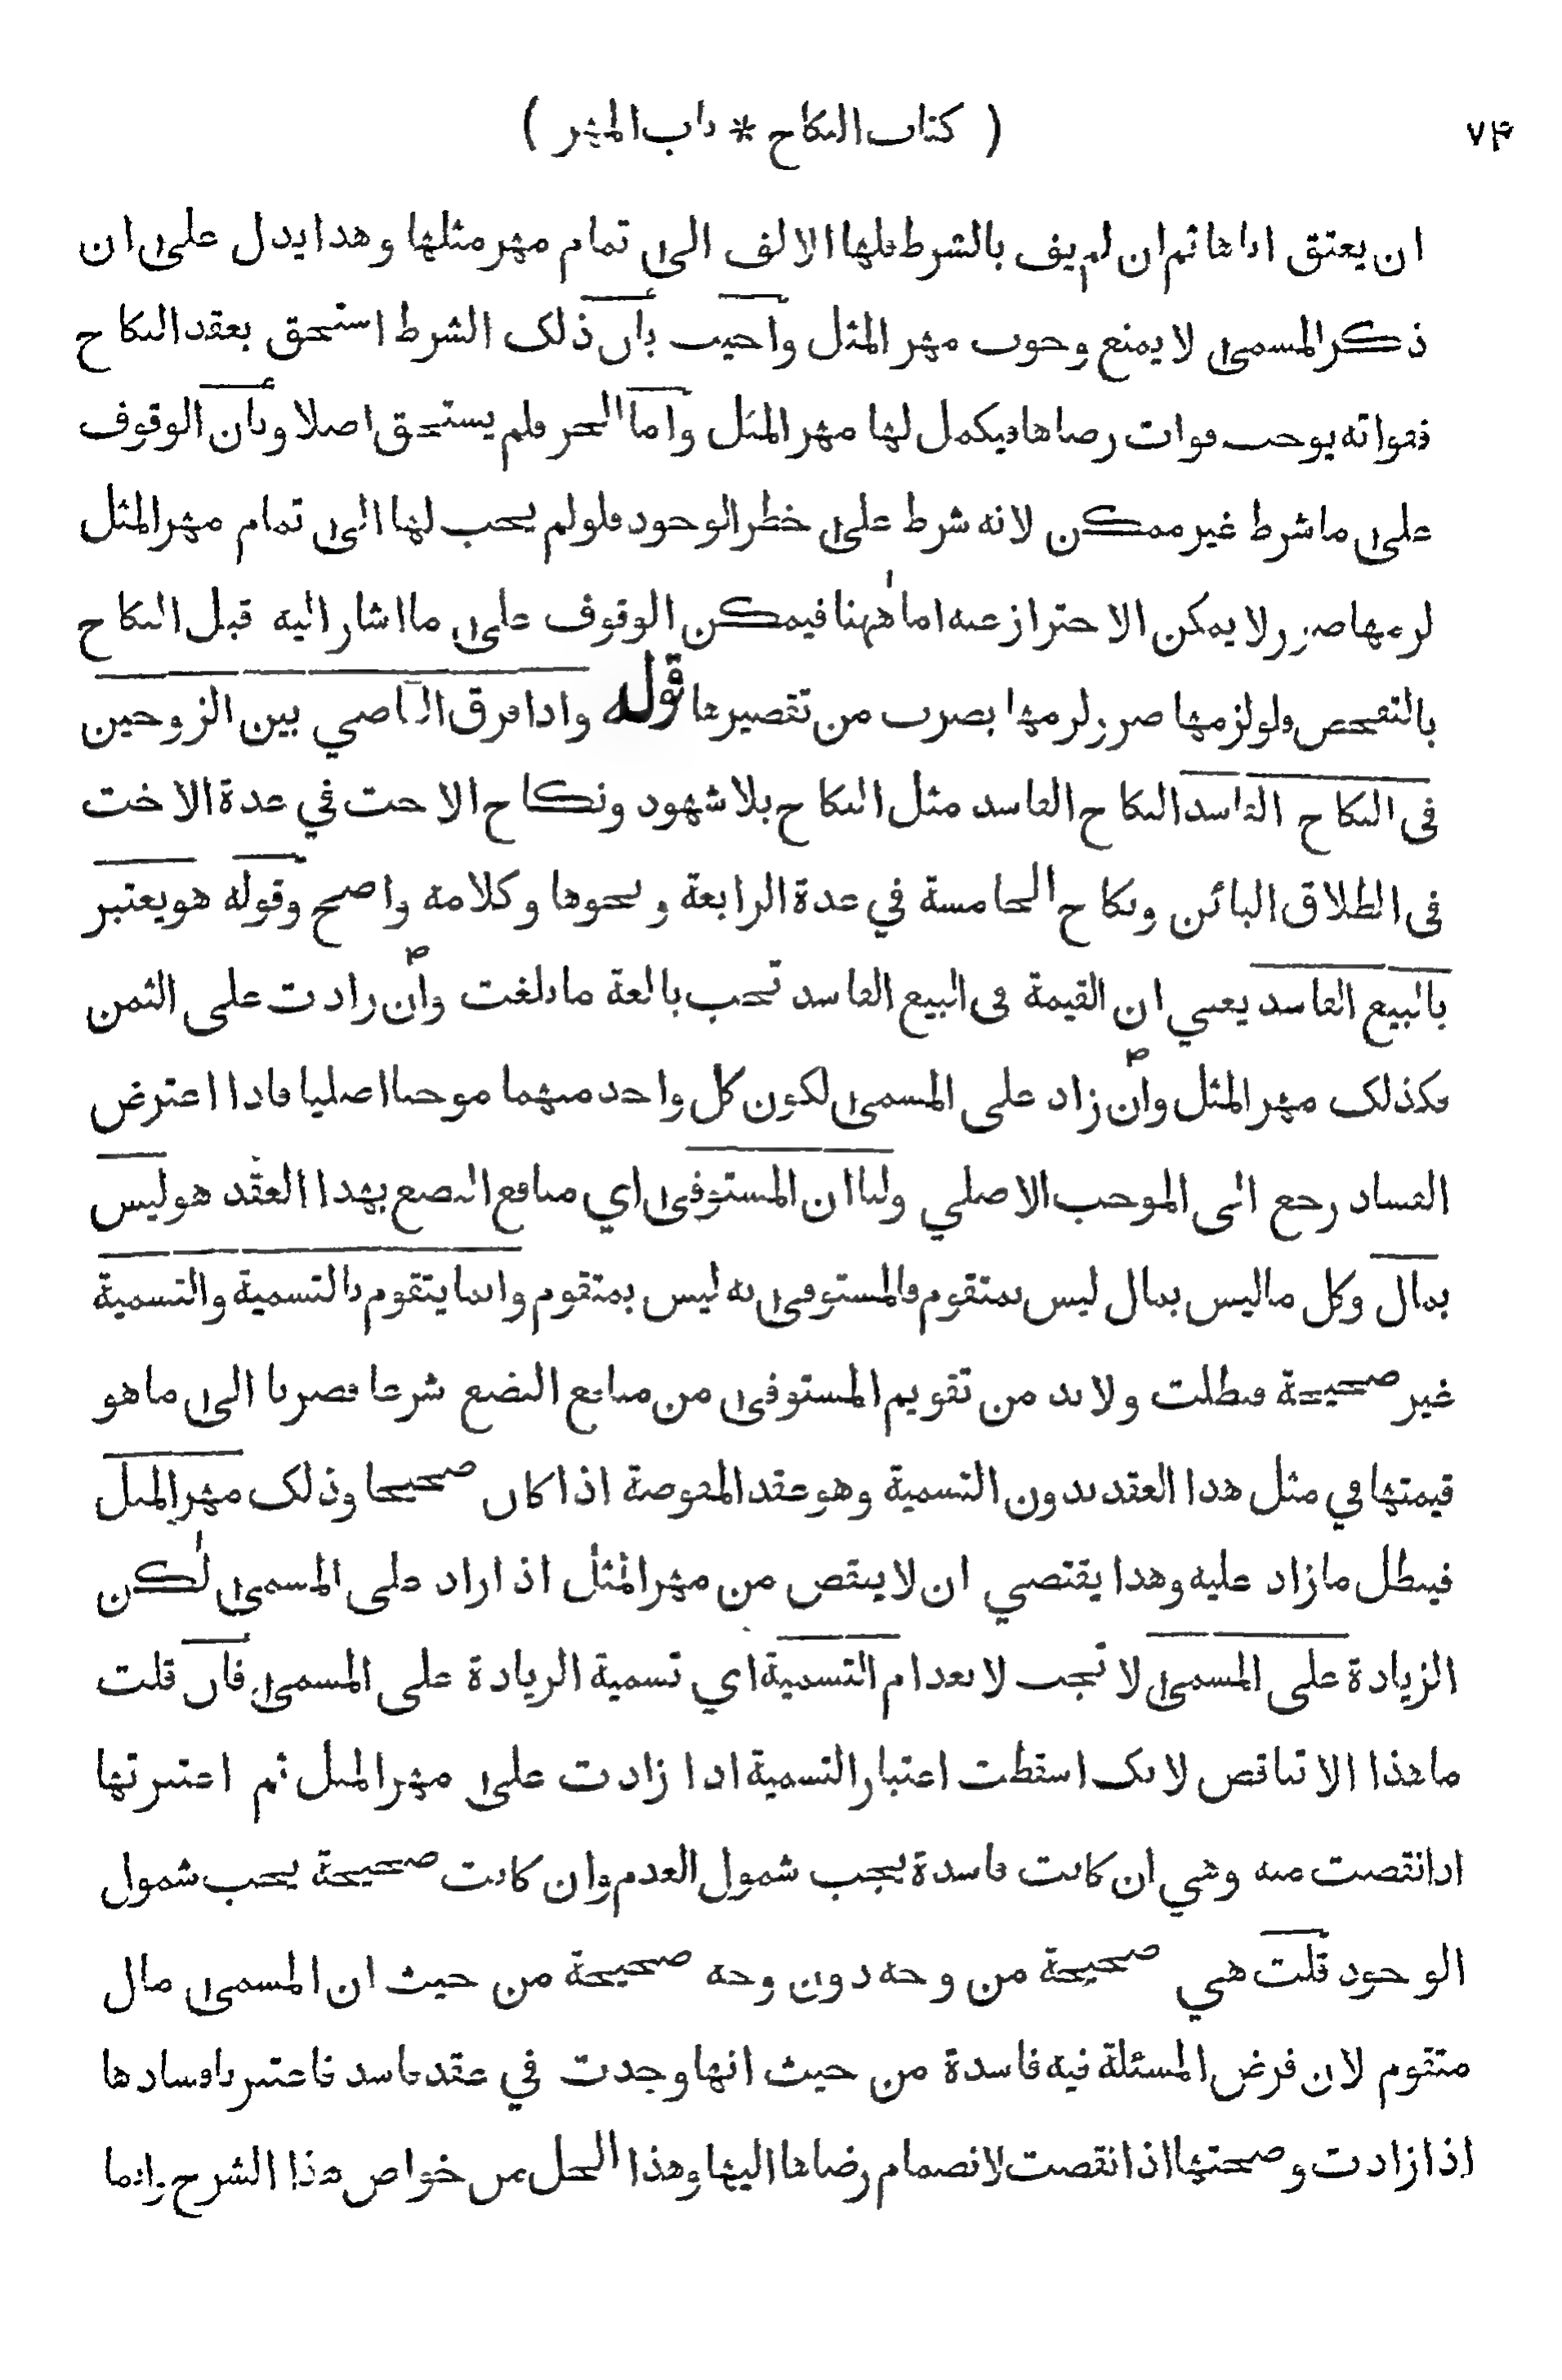 ( كتاب النكاح * باب المهر ) ٧۴
ان يعتق اباها ثم ان لم يف بالشرط فلها الالف الى تمام مهر مثلها وهذا يدل على ان
ذكر المسمى لا يمنع وجوب مهر المثل واجيب بأن ذلك الشرط استحق بعقد النكاح
ففواته يوجب فوات رضاها فيكمل لها مهر المثل واما الخمر فلم يستحق اصلا وبأن الوقوف
على ما شرط غير ممكن لانه شرط على خطر الوجود فلو لم يجب لها الى تمام مهر المثل
لزمها ضرر لا يمكن الاحتراز عنه اما ههنا فيمكن الوقوف على ما اشار اليه قبل النكاح
بالتفحص ولو لزمها ضرر لزمها بضرب من تقصيرها قوله واذا فرق القاضي بين الزوجين
فى النكاح الفاسد النكاح الفاسد مثل النكاح بلا شهود ونكاح الاخت في عدة الاخت
فى الطلاق البائن ونكاح الخامسة في عدة الرابعة ونحوها وكلامه واضح وقوله هو يعتبر
بالبيع الفاسد يعني ان القيمة فى البيع الفاسد تجب بالغة ما بلغت وان زادت على الثمن
فكذلك مهر المثل وان زاد على المسمى لكون كل واحد منهما موجبا اصليا فاذا اعترض
الفساد رجع الى الموجب الاصلي ولنا ان المستوفى اي منافع البضع بهذا العقد هو ليس
بمال وكل ما ليس بمال ليس بمتقوم فالمستوفى به ليس بمتقوم وانما يتقوم بالتسمية والتسمية
غير صحيحة فبطلت ولا بد من تقويم المستوفى من منافع البضع شرعا فصرنا الى ما هو
قيمتها في مثل هذا العقد بدون التسمية وهو عقد المفوضة اذا كان صحيحا وذلك مهر المثل
فيبطل ما زاد عليه وهذا يقتضي ان لا ينقص من مهر المثل اذا زاد على المسمى لٰكن
الزيادة على المسمى لا تجب لانعدام التسمية اي تسمية الزيادة على المسمى فان قلت
ما هذا الا تناقض لانك اسقطت اعتبار التسمية اذا زادت على مهر المثل ثم اعتبرتها
اذا نقصت منه وهي ان كانت فاسدة يجب شمول العدم وان كانت صحيحة يجب شمول
الوجود قلت هي صحيحة من وجه دون وجه صحيحة من حيث ان المسمى مال
متقوم لان فرض المسئلة فيه فاسدة من حيث انها وجدت في عقد فاسد فاعتبرنا فسادها
اذا زادت وصحتها اذا نقصت لانضمام رضاها اليها وهذا الحل من خواص هذا الشرح وانما